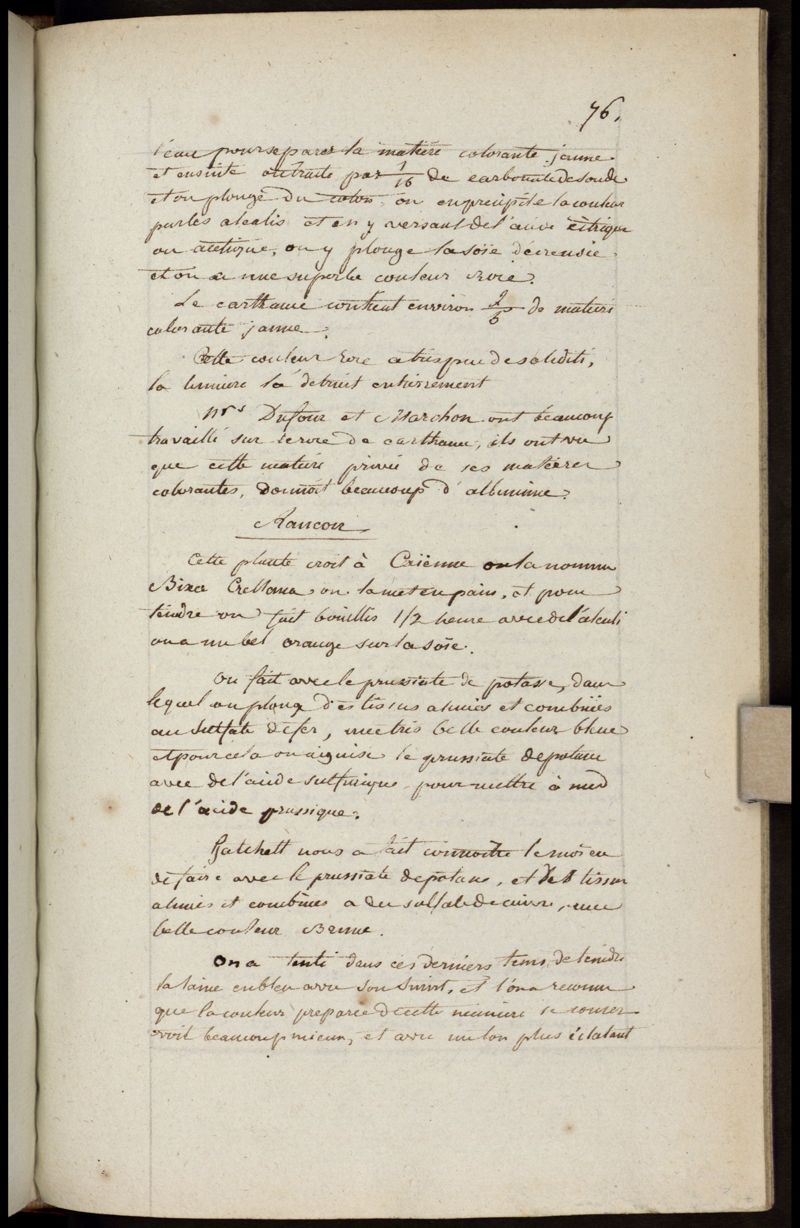 76.
l'eau pour separer la matiere colorante jaune
et ensuite on traite par 1/16 de carbonate de soude
et on plonge du coton on en precipite la couleur
par les alcalis et en y versant de l'acide citrique
ou acetique, on y plonge la soie décreusée
et on a une superbe couleur rose.
Le carthame contient environ 2/6 de matiere
colorante jaune.
Cette couleur rose a tres peu de solidité,
la lumiere la detruit entierement
Mrs Dufour et Marchon ont beaucoup
travaillé sur le rose de carthame, ils ont vu
que cette matiere privée de ses matieres
colorantes, donnoit beaucoup d'albumine.
Raucou
Cette plante croit à Caïenne on la nomme
Bixa Orellana on la met en pains, et pour
teindre on fait bouillir 1/2 heure avec de l'alcali
on a un bel orange sur la soie.
On fait avec le prussiate de potasse, dans
lequel on plonge des tissus alunés et combinés
au sulfate de fer, une tres belle couleur bleue
et pour cela on aiguise le prussiate de potasse
avec de l'acide sulfurique pour mettre à nud
de l'acide prussique.
Hatchett nous a fait connoitre le moïen
de faire avec le prussiate de potasse, et des tissus
alunés et combinés a du sulfate de cuivre, une
belle couleur Brune.
On a tenté dans ces derniers tems de teindre
la laine en bleu avec son suint, et l'on a reconnu
que la couleur preparée de cette maniere se conser-
voit beaucoup mieux, et avec un ton plus éclatant